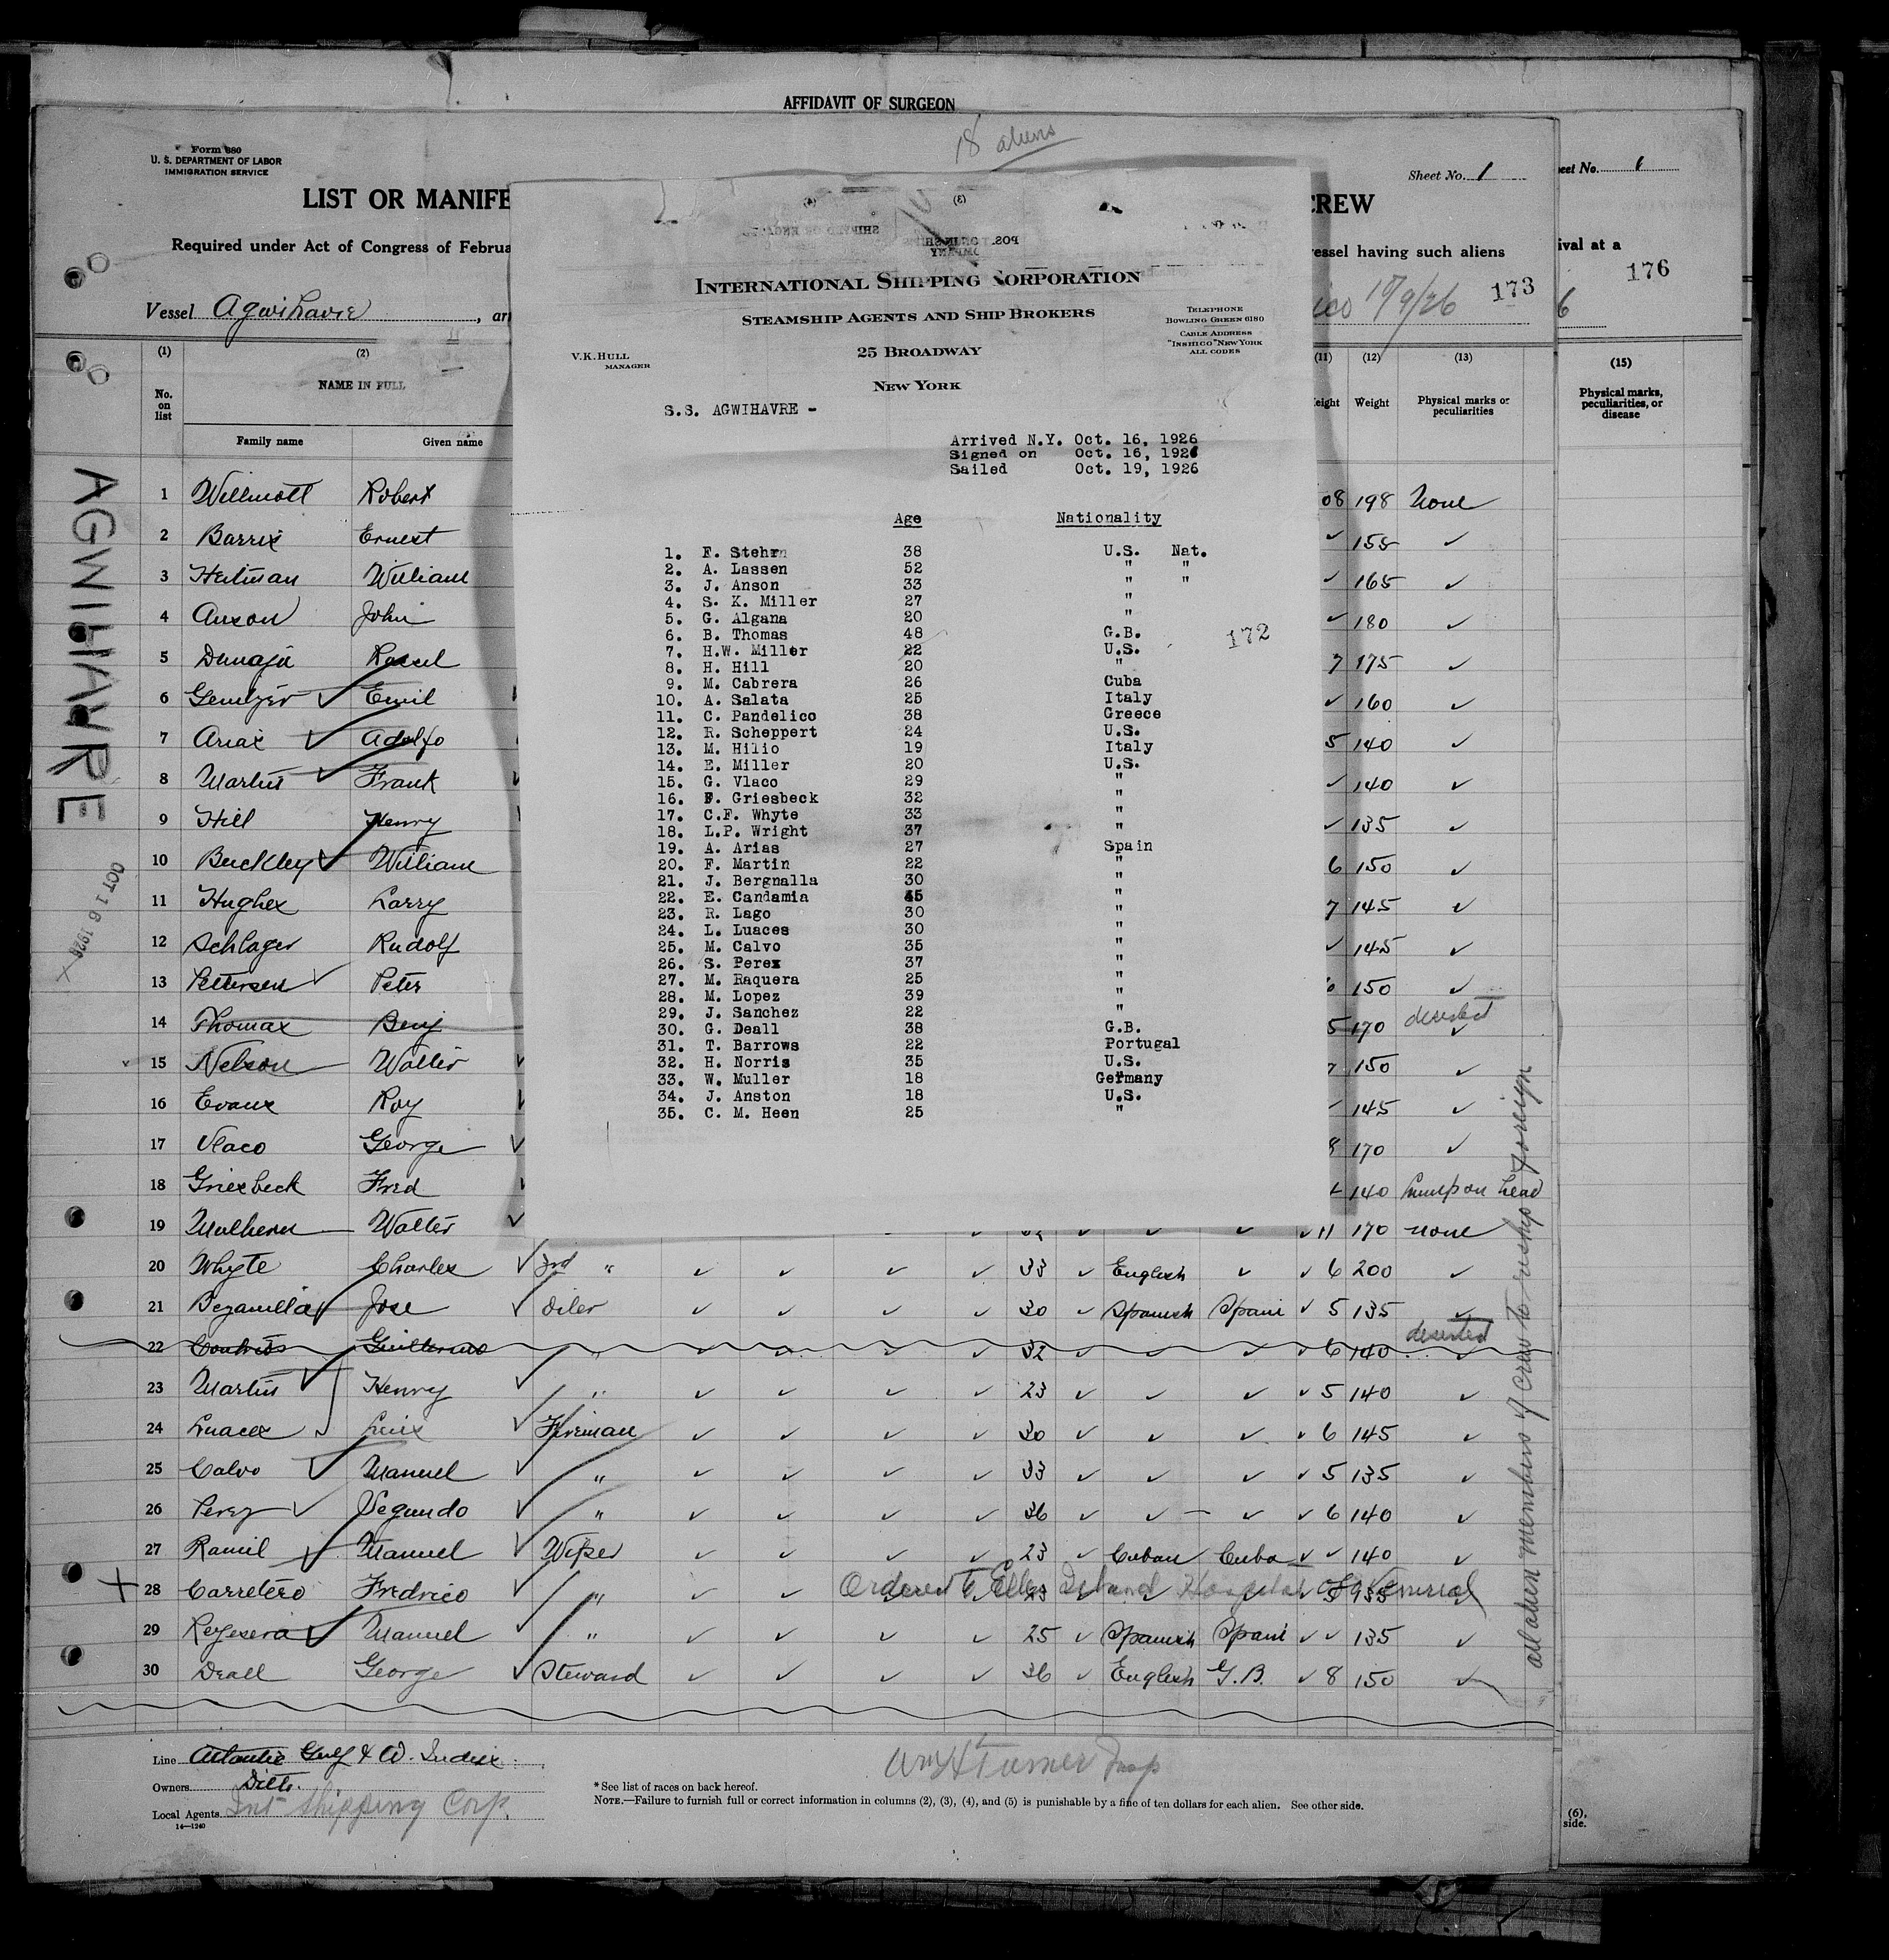 AFFIDAVIT OF SURGEON
18 aliens
Form 680
U. S. DEPARTMENT OF LABOR
IMMIGRATION SERVICE
Sheet No. 1
eet No. 6
LIST OR MANIFE
CREW
Required under Act of Congress of Februa
essel having such aliens
ival at a
176
Vessel Agwihavre, arr
ico 10/9/26 173
6
(1) (2) (11) (12) (13) (15)
No. on list
NAME IN FULL
Family name Given name
eight Weight Physical marks or peculiarities
Physical marks, peculiarities, or disease
(4) (3)
INTERNATIONAL SHIPPING CORPORATION
STEAMSHIP AGENTS AND SHIP BROKERS
25 BROADWAY
NEW YORK
V.K. HULL
MANAGER
TELEPHONE
BOWLING GREEN 6180
CABLE ADDRESS
"INSHICO" NEW YORK
ALL CODES
S.S. AGWIHAVRE -
Arrived N.Y. Oct. 16, 1926
Signed on Oct. 16, 1926
Sailed Oct. 19, 1926
Age Nationality
1. F. Stehrn 38 U.S. Nat.
2. A. Lassen 52 " "
3. J. Anson 33 " "
4. S. K. Miller 27 "
5. G. Algana 20 "
6. B. Thomas 48 G.B.
172
7. H.W. Miller 22 U.S.
8. H. Hill 20 "
9. M. Cabrera 26 Cuba
10. A. Salata 25 Italy
11. C. Pandelico 38 Greece
12. R. Scheppert 24 U.S.
13. M. Hilio 19 Italy
14. E. Miller 20 U.S.
15. G. Vlaco 29 "
16. F. Griesbeck 32 "
17. C.F. Whyte 33 "
18. L.P. Wright 37 "
19. A. Arias 27 Spain
20. F. Martin 22 "
21. J. Bergnalla 30 "
22. E. Candamia 45 "
23. R. Lago 30 "
24. L. Luaces 30 "
25. M. Calvo 35 "
26. S. Perez 37 "
27. M. Raquera 25 "
28. M. Lopez 39 "
29. J. Sanchez 22 "
30. G. Deall 38 G.B.
31. T. Barrows 22 Portugal
32. H. Norris 35 U.S.
33. W. Muller 18 Germany
34. J. Anston 18 U.S.
35. C. M. Heen 25 "
AGWIHAVRE
OCT 16 1926
1 Willmott Robert 08 198 None
2 Barris Ernest ✓ 155 ✓
3 Heitman William ✓ 165 ✓
4 Anson John ✓ 180 ✓
5 7 175 ✓
6 Emil ✓ 160 ✓
7 Arias Adolfo 5 140 ✓
8 Martin Frank ✓ 140 ✓
9 Hill Henry ✓ 135 ✓
10 Buckley William 6 150 ✓
11 Hughes Larry 7 145 ✓
12 Schlager Rudolf ✓ 145 ✓
13 Pettersen Peter 150 ✓
14 Thomas Benj 5 170 deserted
15 Nelson Walter 7 150 ✓
16 Evans Roy ✓ 145 ✓
17 Vlaco George 8 170 ✓
18 Griesbeck Fred 140 Lump on head
19 Mulhern Walter 11 170 none
20 Whyte Charles 3rd " 33 English 6 200 ✓
21 Bezanilla Jose Oiler 30 Spanish Spain 5 135 ✓
22 Guillermo " 32 6 140 deserted
23 Martin Henry " 23 5 140 ✓
24 Luaces Luis Fireman 30 6 145 ✓
25 Calvo Manuel " 33 5 135 ✓
26 Perez Segundo " 36 6 140 ✓
27 Ramil Manuel Wiper 23 Cuban Cuba ✓ 140 ✓
28 Carretero Fredrico " Ordered to Ellis Island Hospital
29 Manuel " 25 Spanish Spain ✓ 135 ✓
30 Deall George Steward 36 English G.B. 8 150 ✓
all alien members of crew to reship foreign
Line Atlantic Gulf & W. Indies
Owners Ditto
Local Agents Int Shipping Corp.
14—1240
Wm H Turner Insp
* See list of races on back hereof.
NOTE.—Failure to furnish full or correct information in columns (2), (3), (4), and (5) is punishable by a fine of ten dollars for each alien. See other side.
(6),
side.